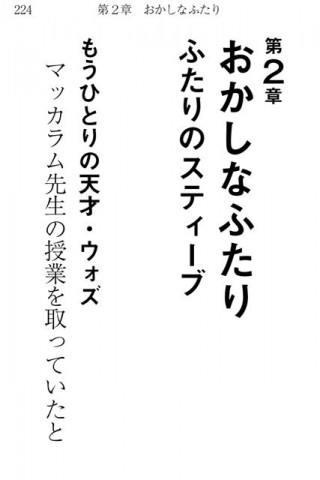 224
第２章　おかしなふたり
第２章
おかしなふたり
ふたりのスティーブ
もうひとりの天才・ウォズ
マッカラム先生の授業を取っていたと